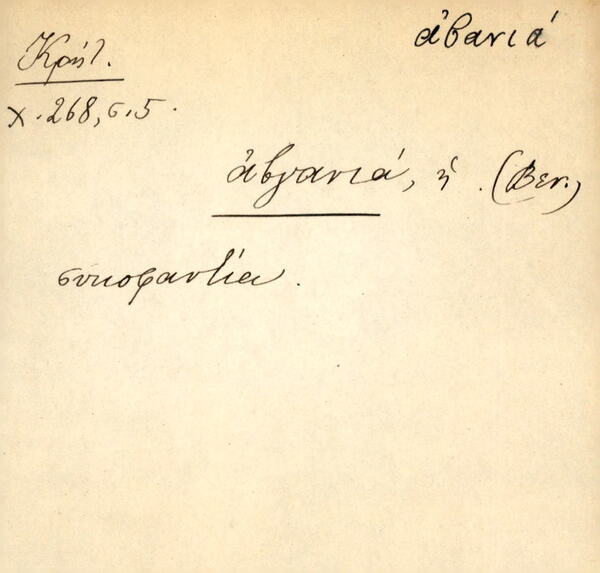 ἀβανιά
Κρήτ.
χ. 268, σ. 5.
ἀβγανιά, ἡ. (Βεν.)
συκοφαντία.